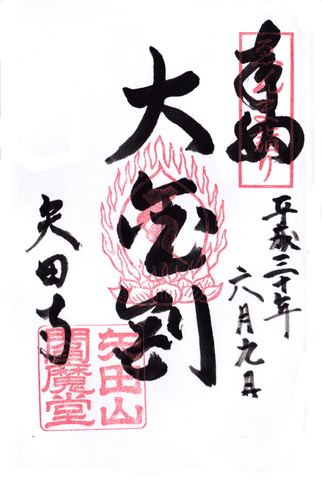 奉納
平成三十年
六月九日
大金剛
矢田寺
矢田山
閻魔堂